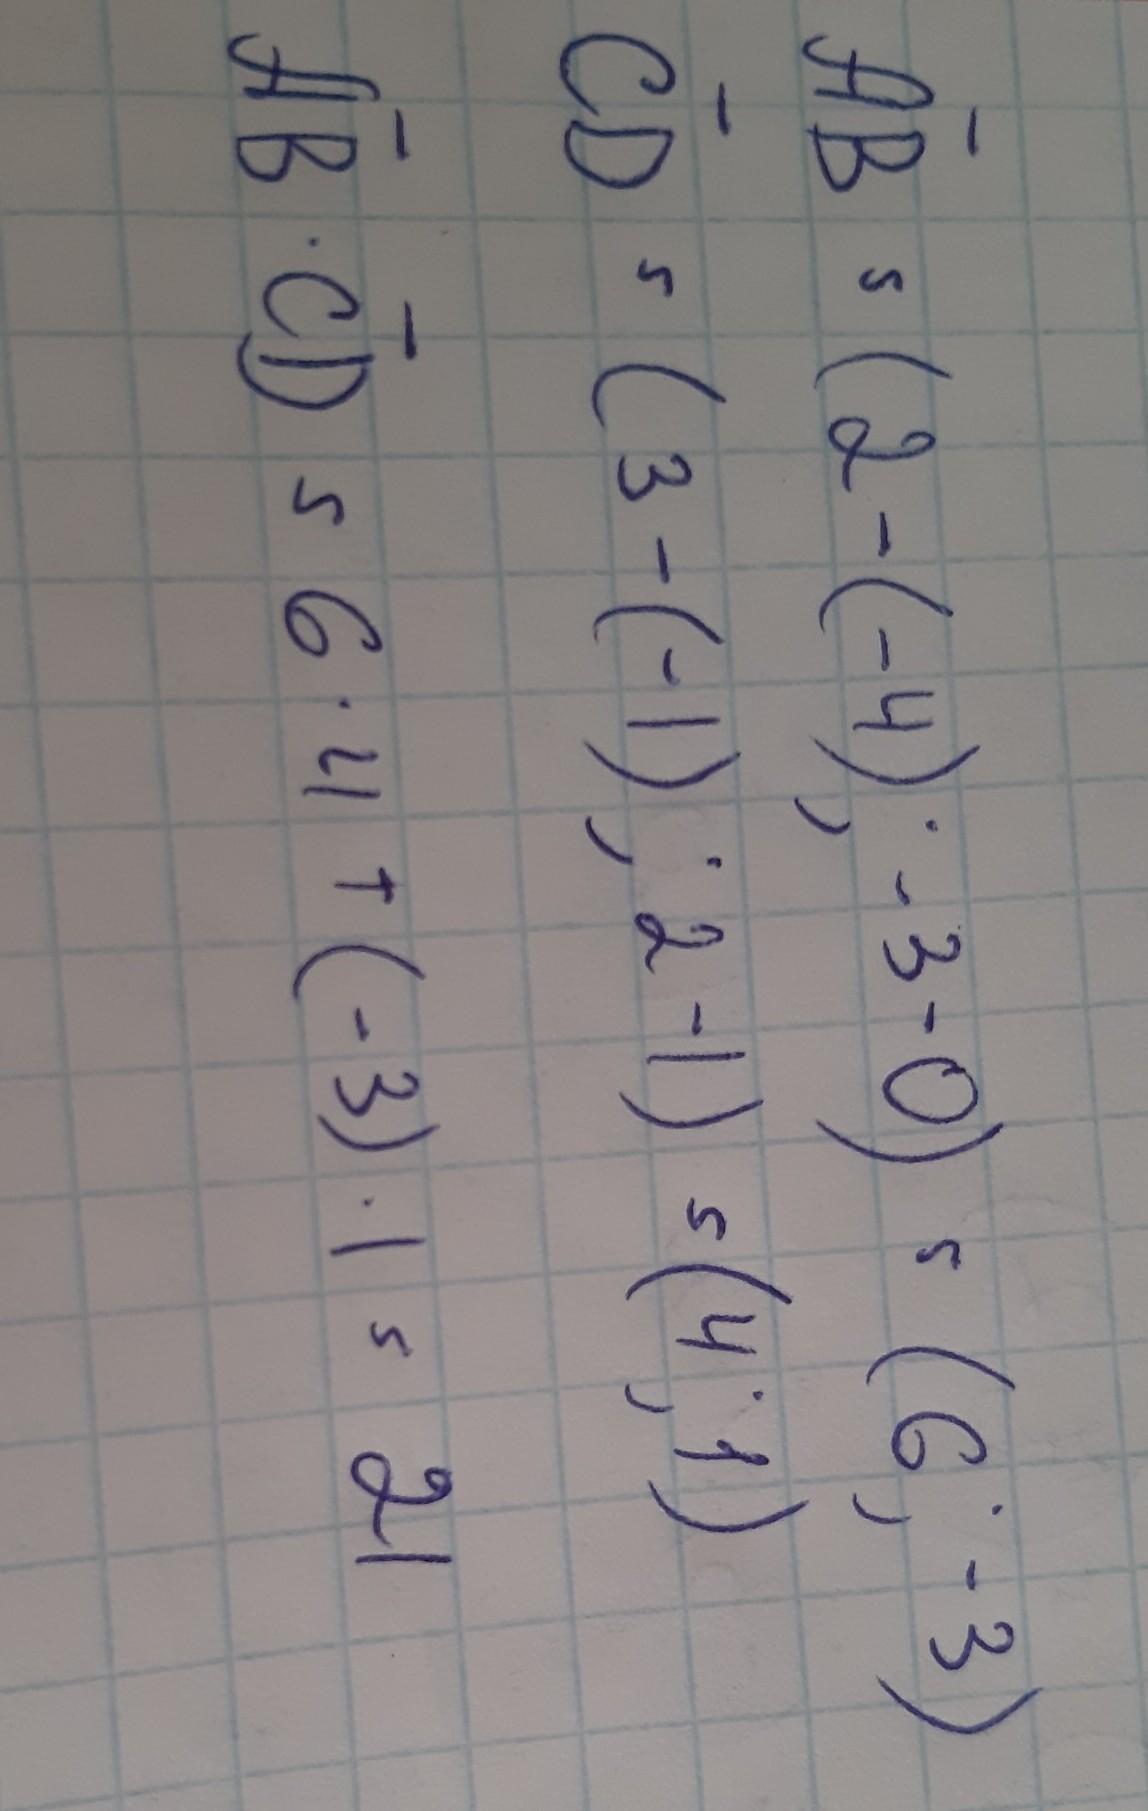 A̅B̅ = (2-(-4); -3-0) = (6; -3)
C̅D̅ = (3-(-1); 2-1) = (4; 1)
A̅B̅ · C̅D̅ = 6 · 4 + (-3) · 1 = 21